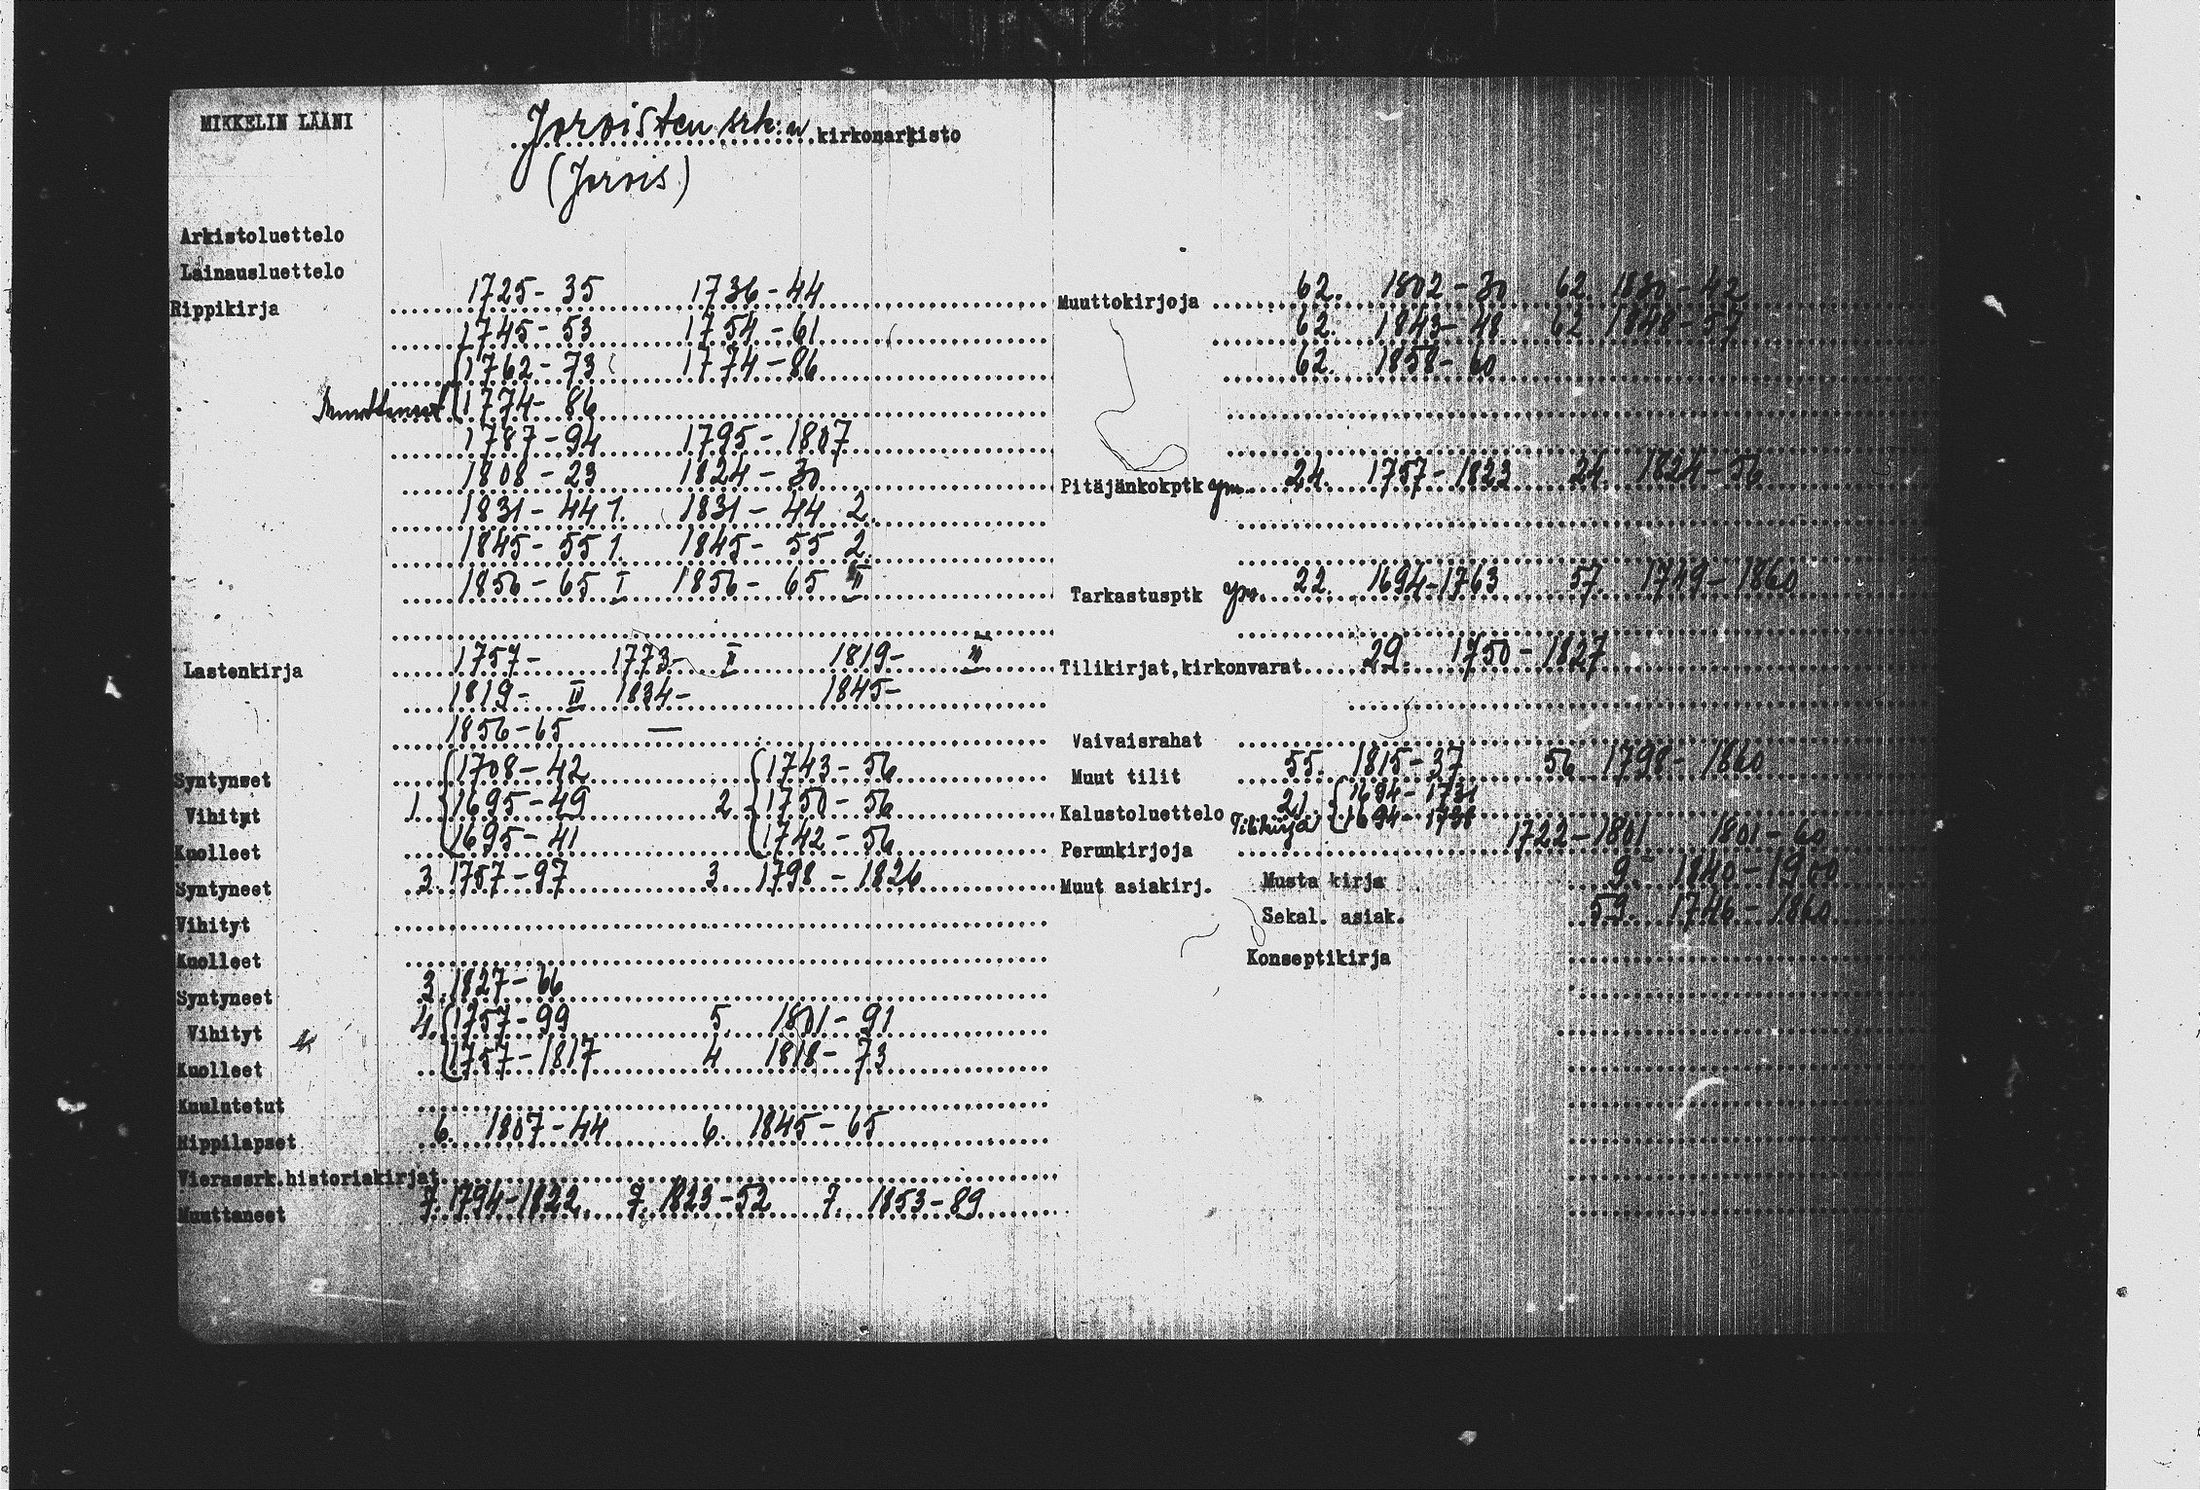 MIKKELIN LÄÄNI
Joroisten srk:n kirkonarkisto
(Jorois)
Arkistoluettelo
Lainausluettelo
Rippikirja 1725-35 1736-44
1745-53 1754-61
1762-73 1774-86
1774-86
1787-94 1795-1807
1808-23 1824-30
1831-44 1. 1831-44 2.
1845-55 1. 1845-55 2.
1856-65 I 1856-65 II
Lastenkirja 1757- 1773- I 1819- II
1819- III 1834- 1845-
1856-65 —
Syntyneet 1708-42 1743-56
Vihityt 1 1695-49 2 1750-56
Kuolleet 1695-41 1742-56
Syntyneet 3. 1757-97 3. 1798-1826
Vihityt
Kuolleet
Syntyneet 3. 1827-66
Vihityt 4. 1757-99 5. 1801-91
Kuolleet 1757-1817 4 1818-73
Kuulutetut
Rippilapset 6. 1807-44 6. 1845-65
Vierassrk.historiakirjat
Muuttaneet 7. 1794-1822 7. 1823-52 7. 1853-89
Muuttokirjoja 62. 1802-30 62. 1830-42
62. 1843-48 62 1848-57
62. 1858-60
Pitäjänkokptk ym. 24. 1757-1823 24. 1824-56
Tarkastusptk ym. 22. 1694-1763 57. 1749-1860
Tilikirjat,kirkonvarat 29. 1750-1827
Vaivaisrahat
Muut tilit 55. 1815-37 56 1798-1860
Kalustoluettelo Tilikirja 21. 1694-1731
1694-1738
Perunkirjoja 1722-1801 1801-60
Muut asiakirj. Musta kirja 9. 1840-1900
Sekal. asiak. 59. 1746-1860
Konseptikirja